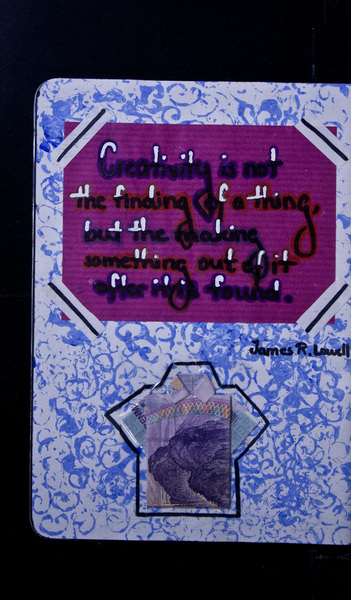 Creativity is not
the finding of a thing,
but the making
something out of it
after it is found.
James R. Lowell